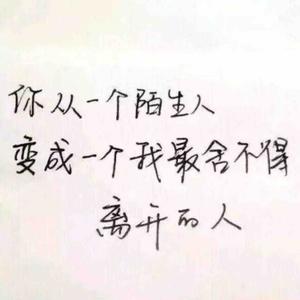 你从一个陌生人
变成一个我最舍不得
离开的人